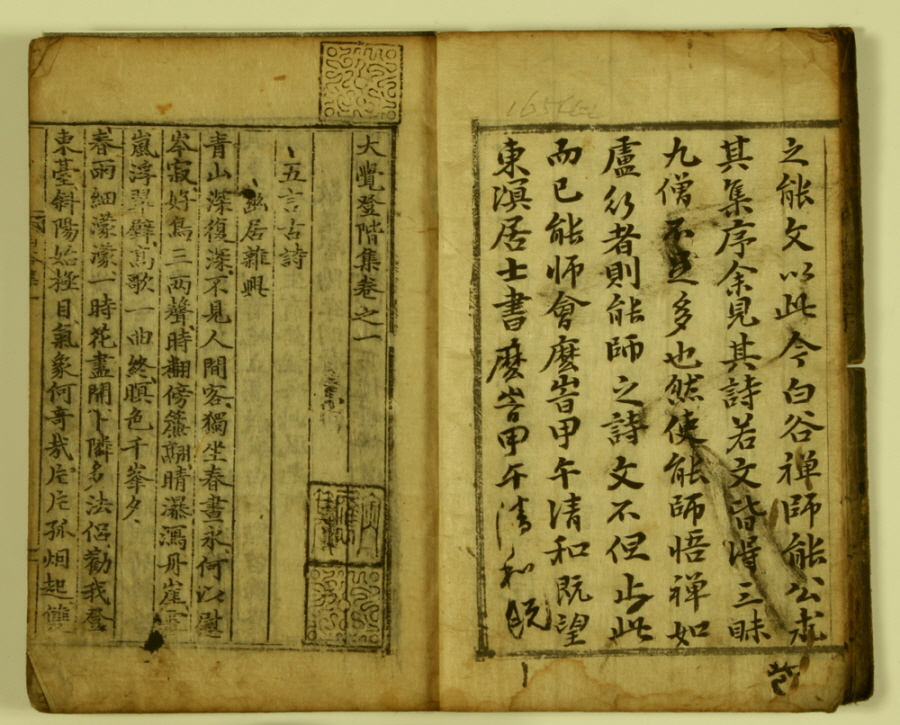 之能文以此今白谷禅師能公求
其集序余見其詩若文皆得三昧
九僧不足多也然使能師悟禅如
盧行者則能師之詩文不但止此
而已能師會麽峕甲午清和既望
東溟居士書麽峕甲午清和既
大覺登階集卷之一
五言古詩
幽居雜興
青山深復深不見人間客獨坐春晝永何以慰
岑寂好鳥三两聲時翻傍簷翮晴瀑瀉丹崖
嵐浮翠壁髙歌一曲終暝色千峯夕
春雨細濛濛一時花盡開卜隣多法侣勸我登
東臺斜陽始極目氣象何竒㦲片片孤烟起雙